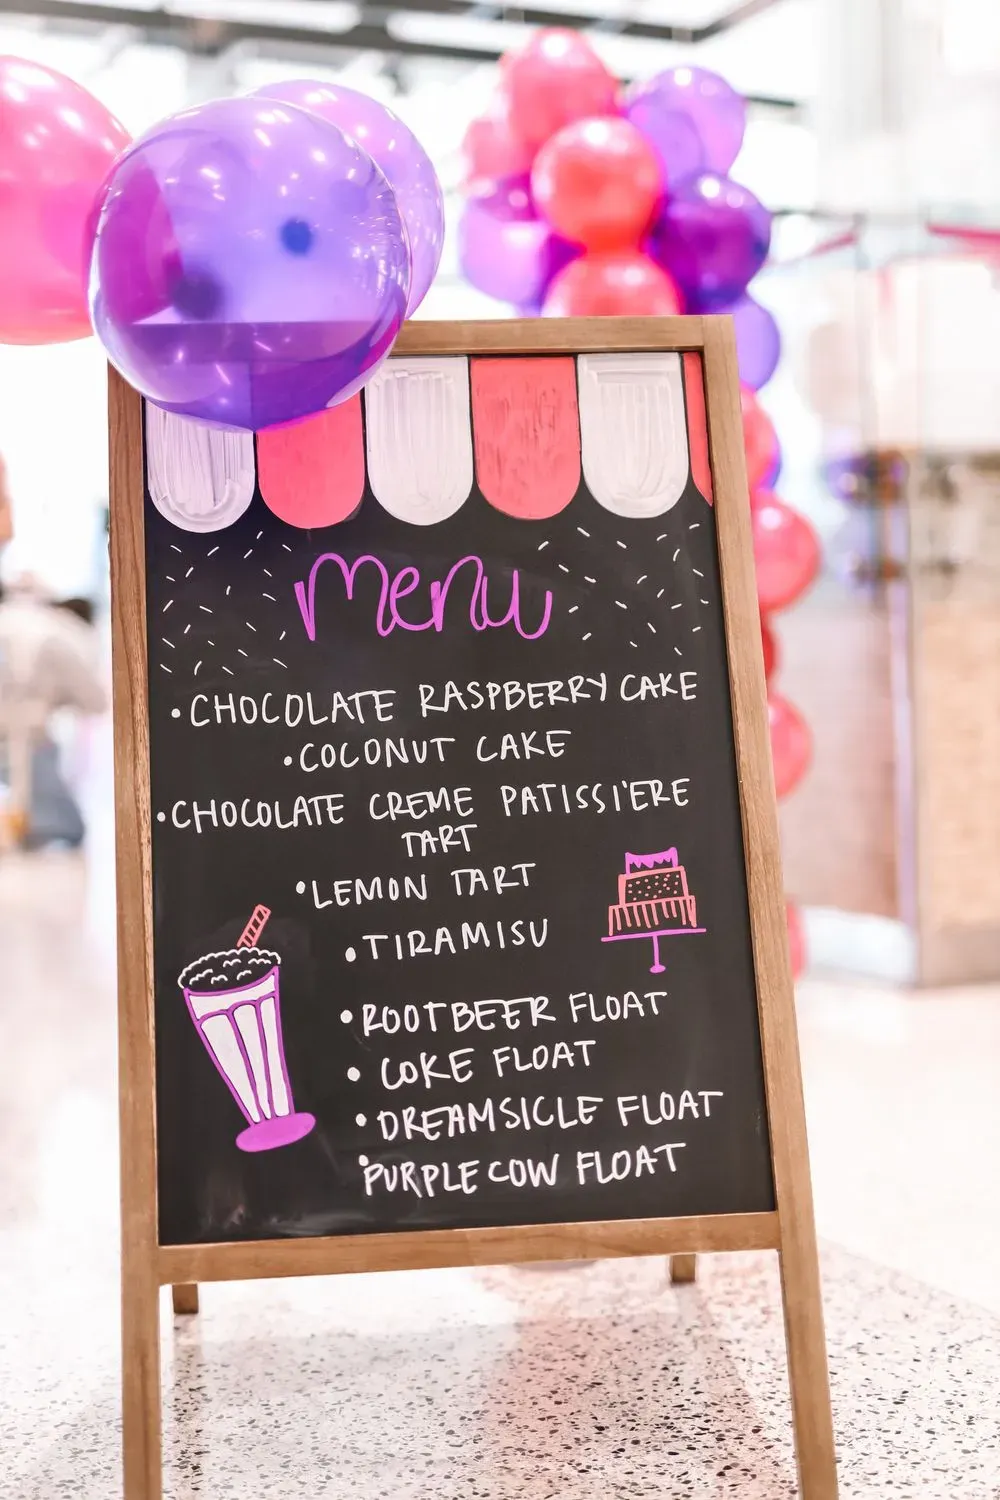 menu
• CHOCOLATE RASPBERRY CAKE
• COCONUT CAKE
• CHOCOLATE CREME PATISSI'ERE
TART
• LEMON TART
• TIRAMISU
• ROOTBEER FLOAT
• COKE FLOAT
• DREAMSICLE FLOAT
• PURPLE COW FLOAT